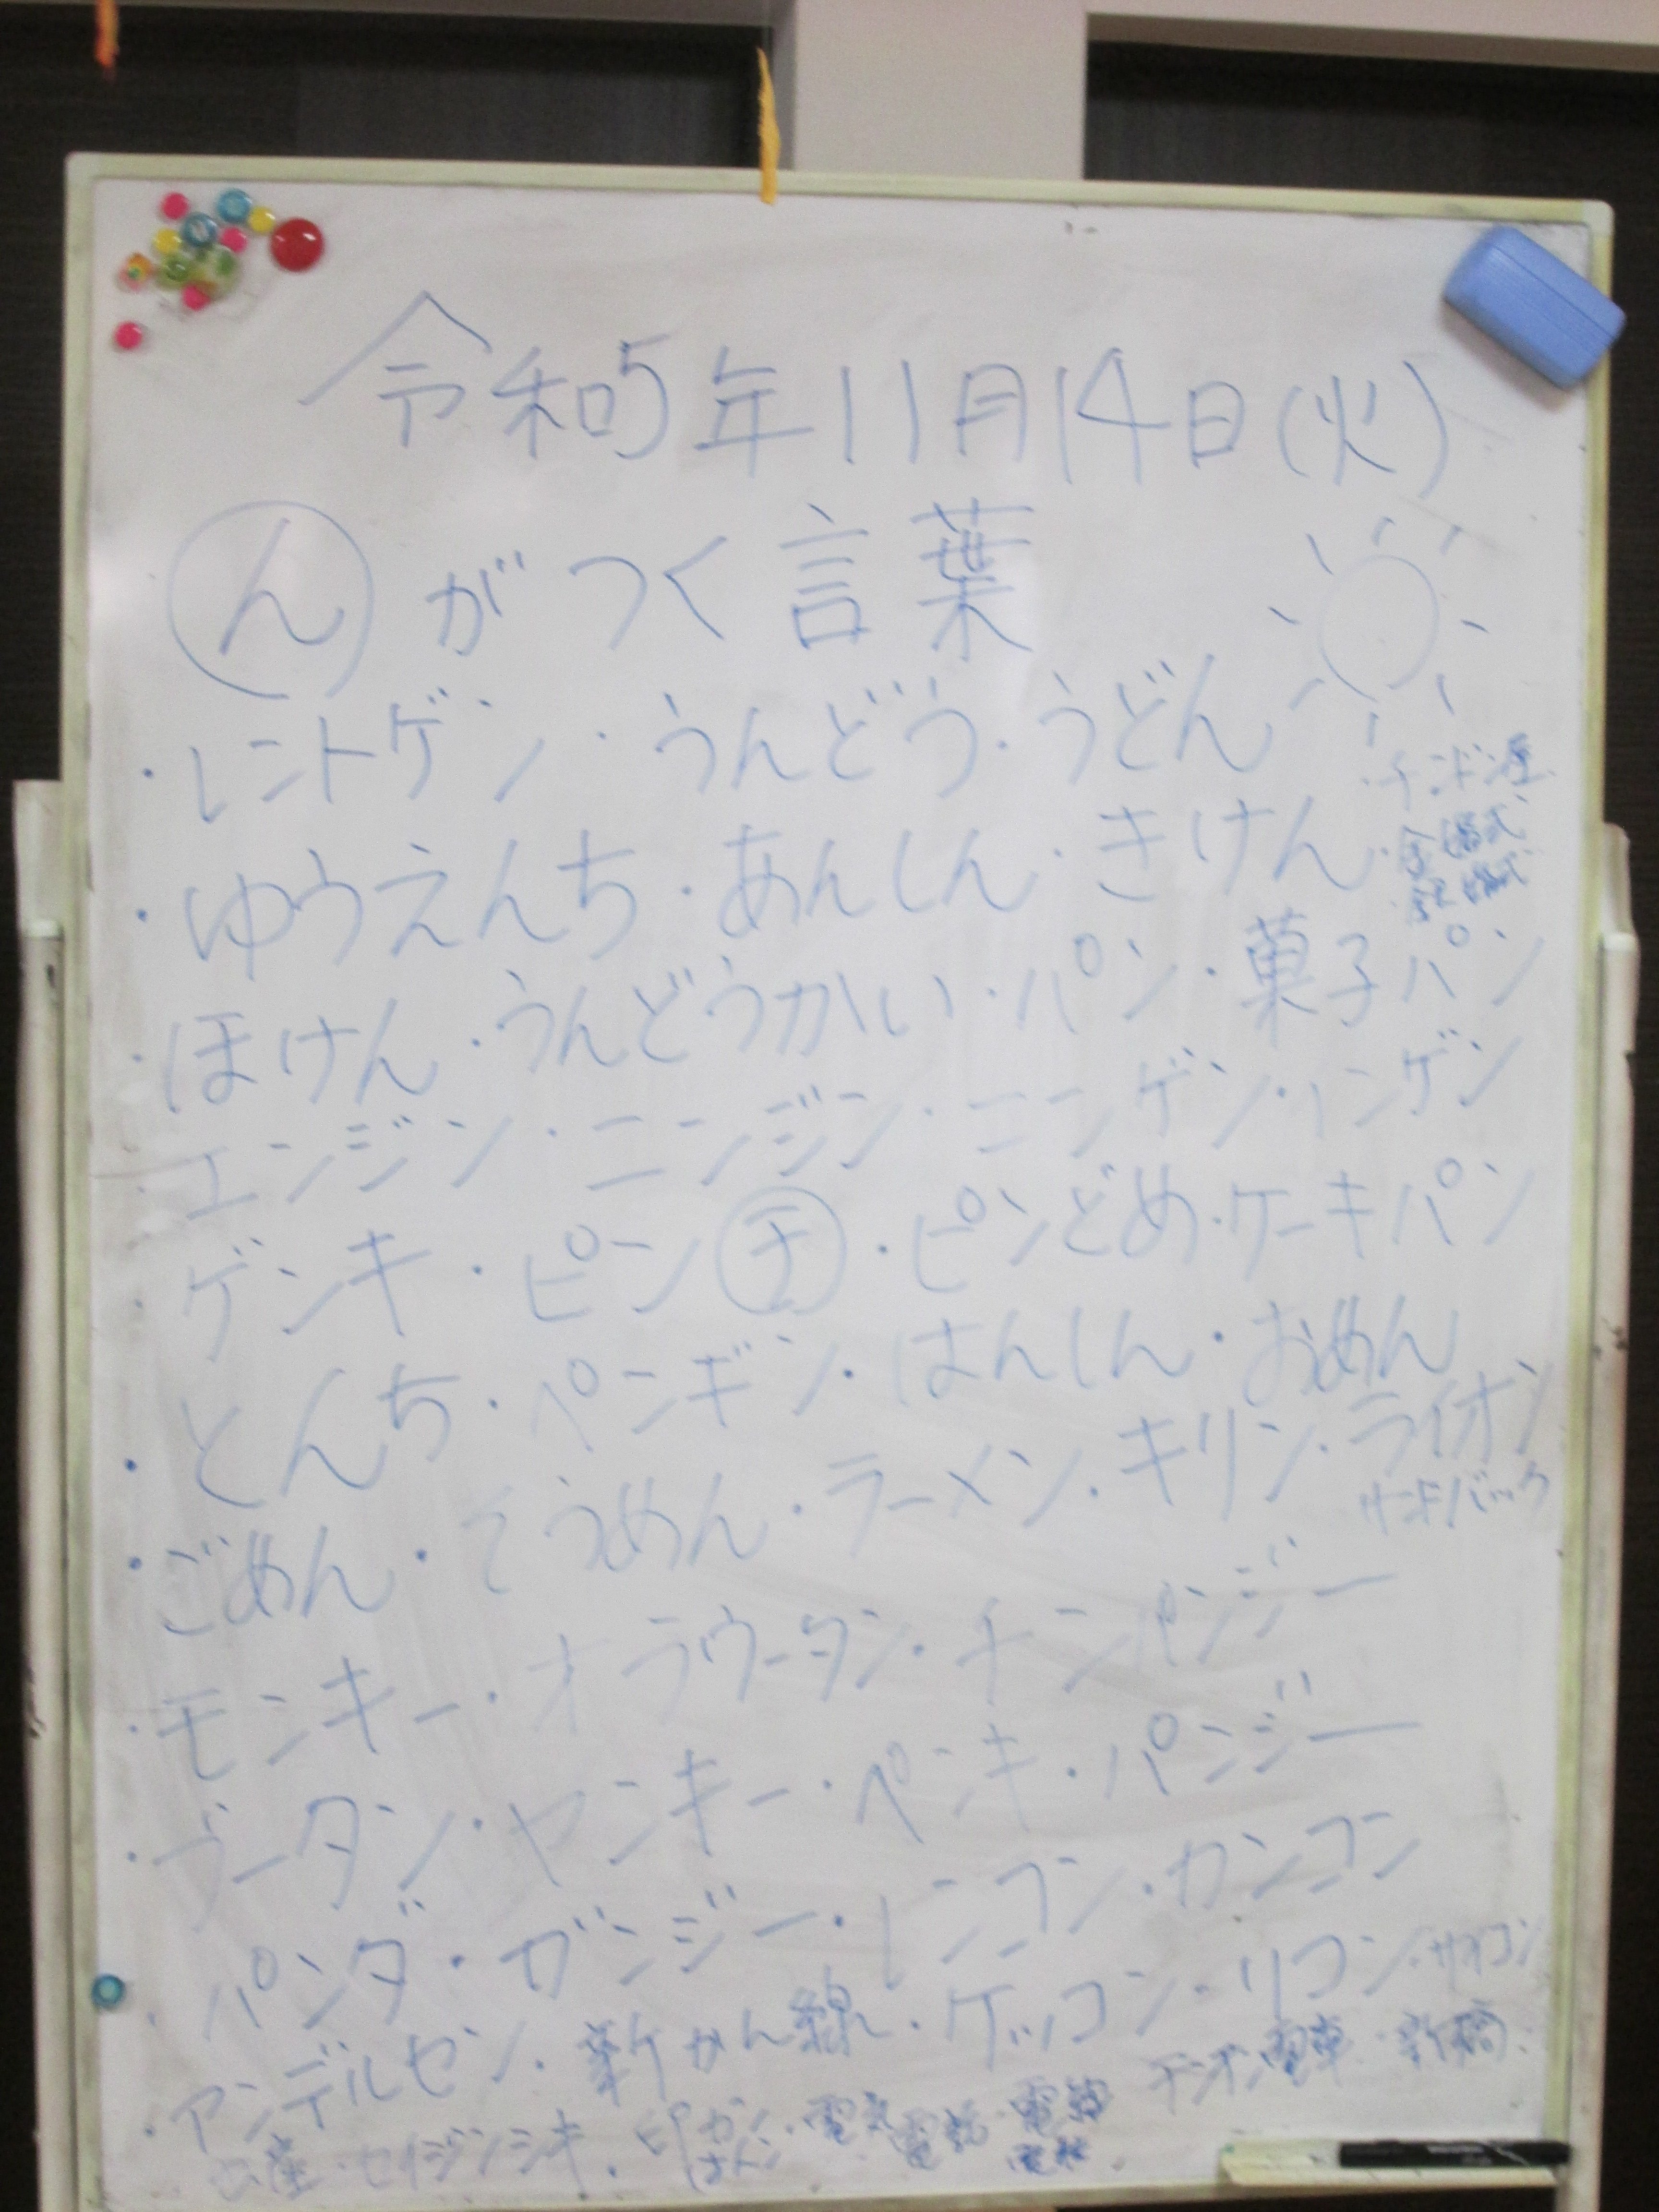 令和5年11月14日(火)
んがつく言葉
・レントゲン・うんどう・うどん
・チンドン屋
・ゆうえんち・あんしん・きけん
・ほけん・うんどうかい・パン・菓子パン
・エンジン・ニンジン・ニンゲン・ハンゲン
・ゲンキ・ピンチ・ピンどめ・ケーキパン
・とんち・ペンギン・はんしん・おめん
・ごめん・そうめん・ラーメン・キリン・ライオン
サンドバック
・モンキー・オラウータン・チンパンジー
・ブータン・ヤンキー・ペンキ・パンジー
・パンダ・ガンジー・レンコン・カンコン
・アンデルセン・新かん線・ケッコン・リコン・サイコン
チンチン電車・新橋
出産・セイジンシキ・印かん・電気電話・電線
はんこ